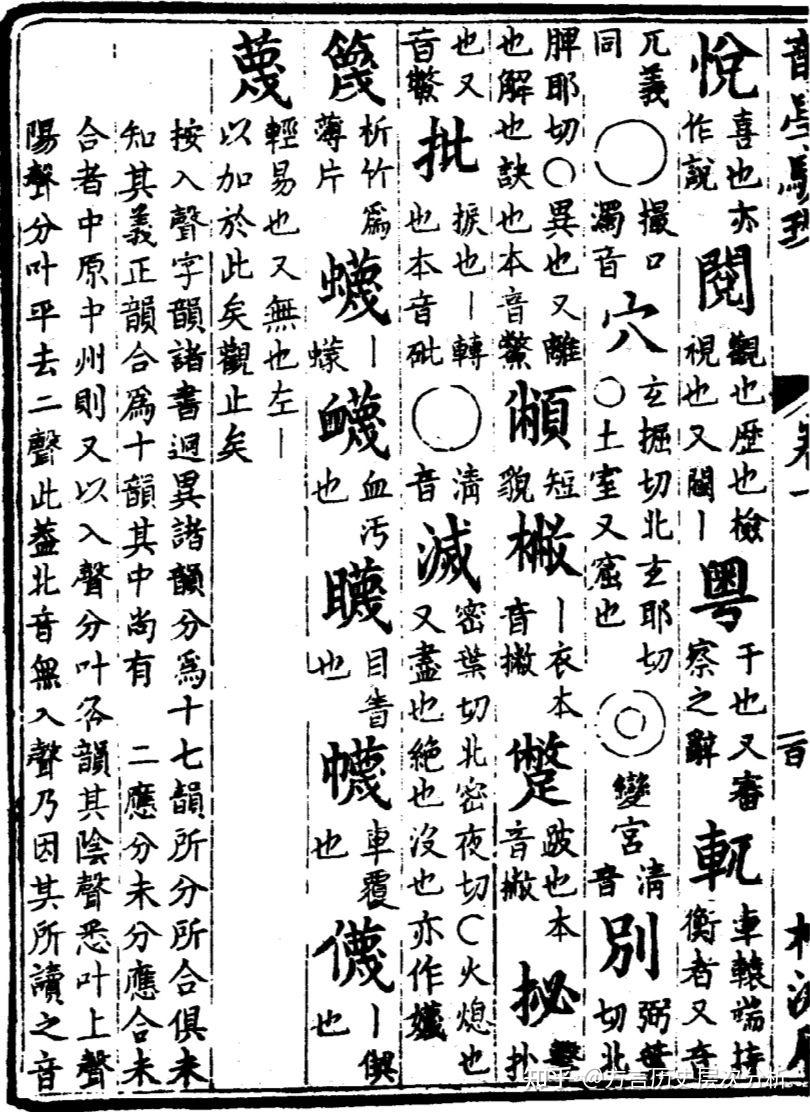 音學驪珠 卷一 百
悅喜也亦作說 閱觀也歷也檢視也又閥｜ 粤于也又審察之辭 軏車轅端持衡者又音
兀義同 ○撮口濁音 穴玄掘切北玄耶切○土室又窟也 ◎變宮清音 別弼葉切北
脾耶切○異也又離也解也訣也本音鱉 短貌 ｜衣本音撇 蹩跛也本音撇 㧙擊扑
也又音鱉 批捩也｜轉也本音砒 ○清音 滅密葉切北密夜切○火熄也又盡也絕也沒也亦作
篾析竹爲薄片 蠛｜蠓 衊血汚也 目眚也 幭車覆也 ｜也
蔑輕易也又無也左｜以加於此矣觀止矣
按入聲字韻諸書迥異諸韻分爲十七韻所分所合俱未
知其義正韻合爲十韻其中尚有 二應分未分應合未
合者中原中州則又以入聲分叶各韻其陰聲悉叶上聲
陽聲分叶平去二聲此葢北音無入聲乃因其所讀之音
知乎 @方言历史层次分析